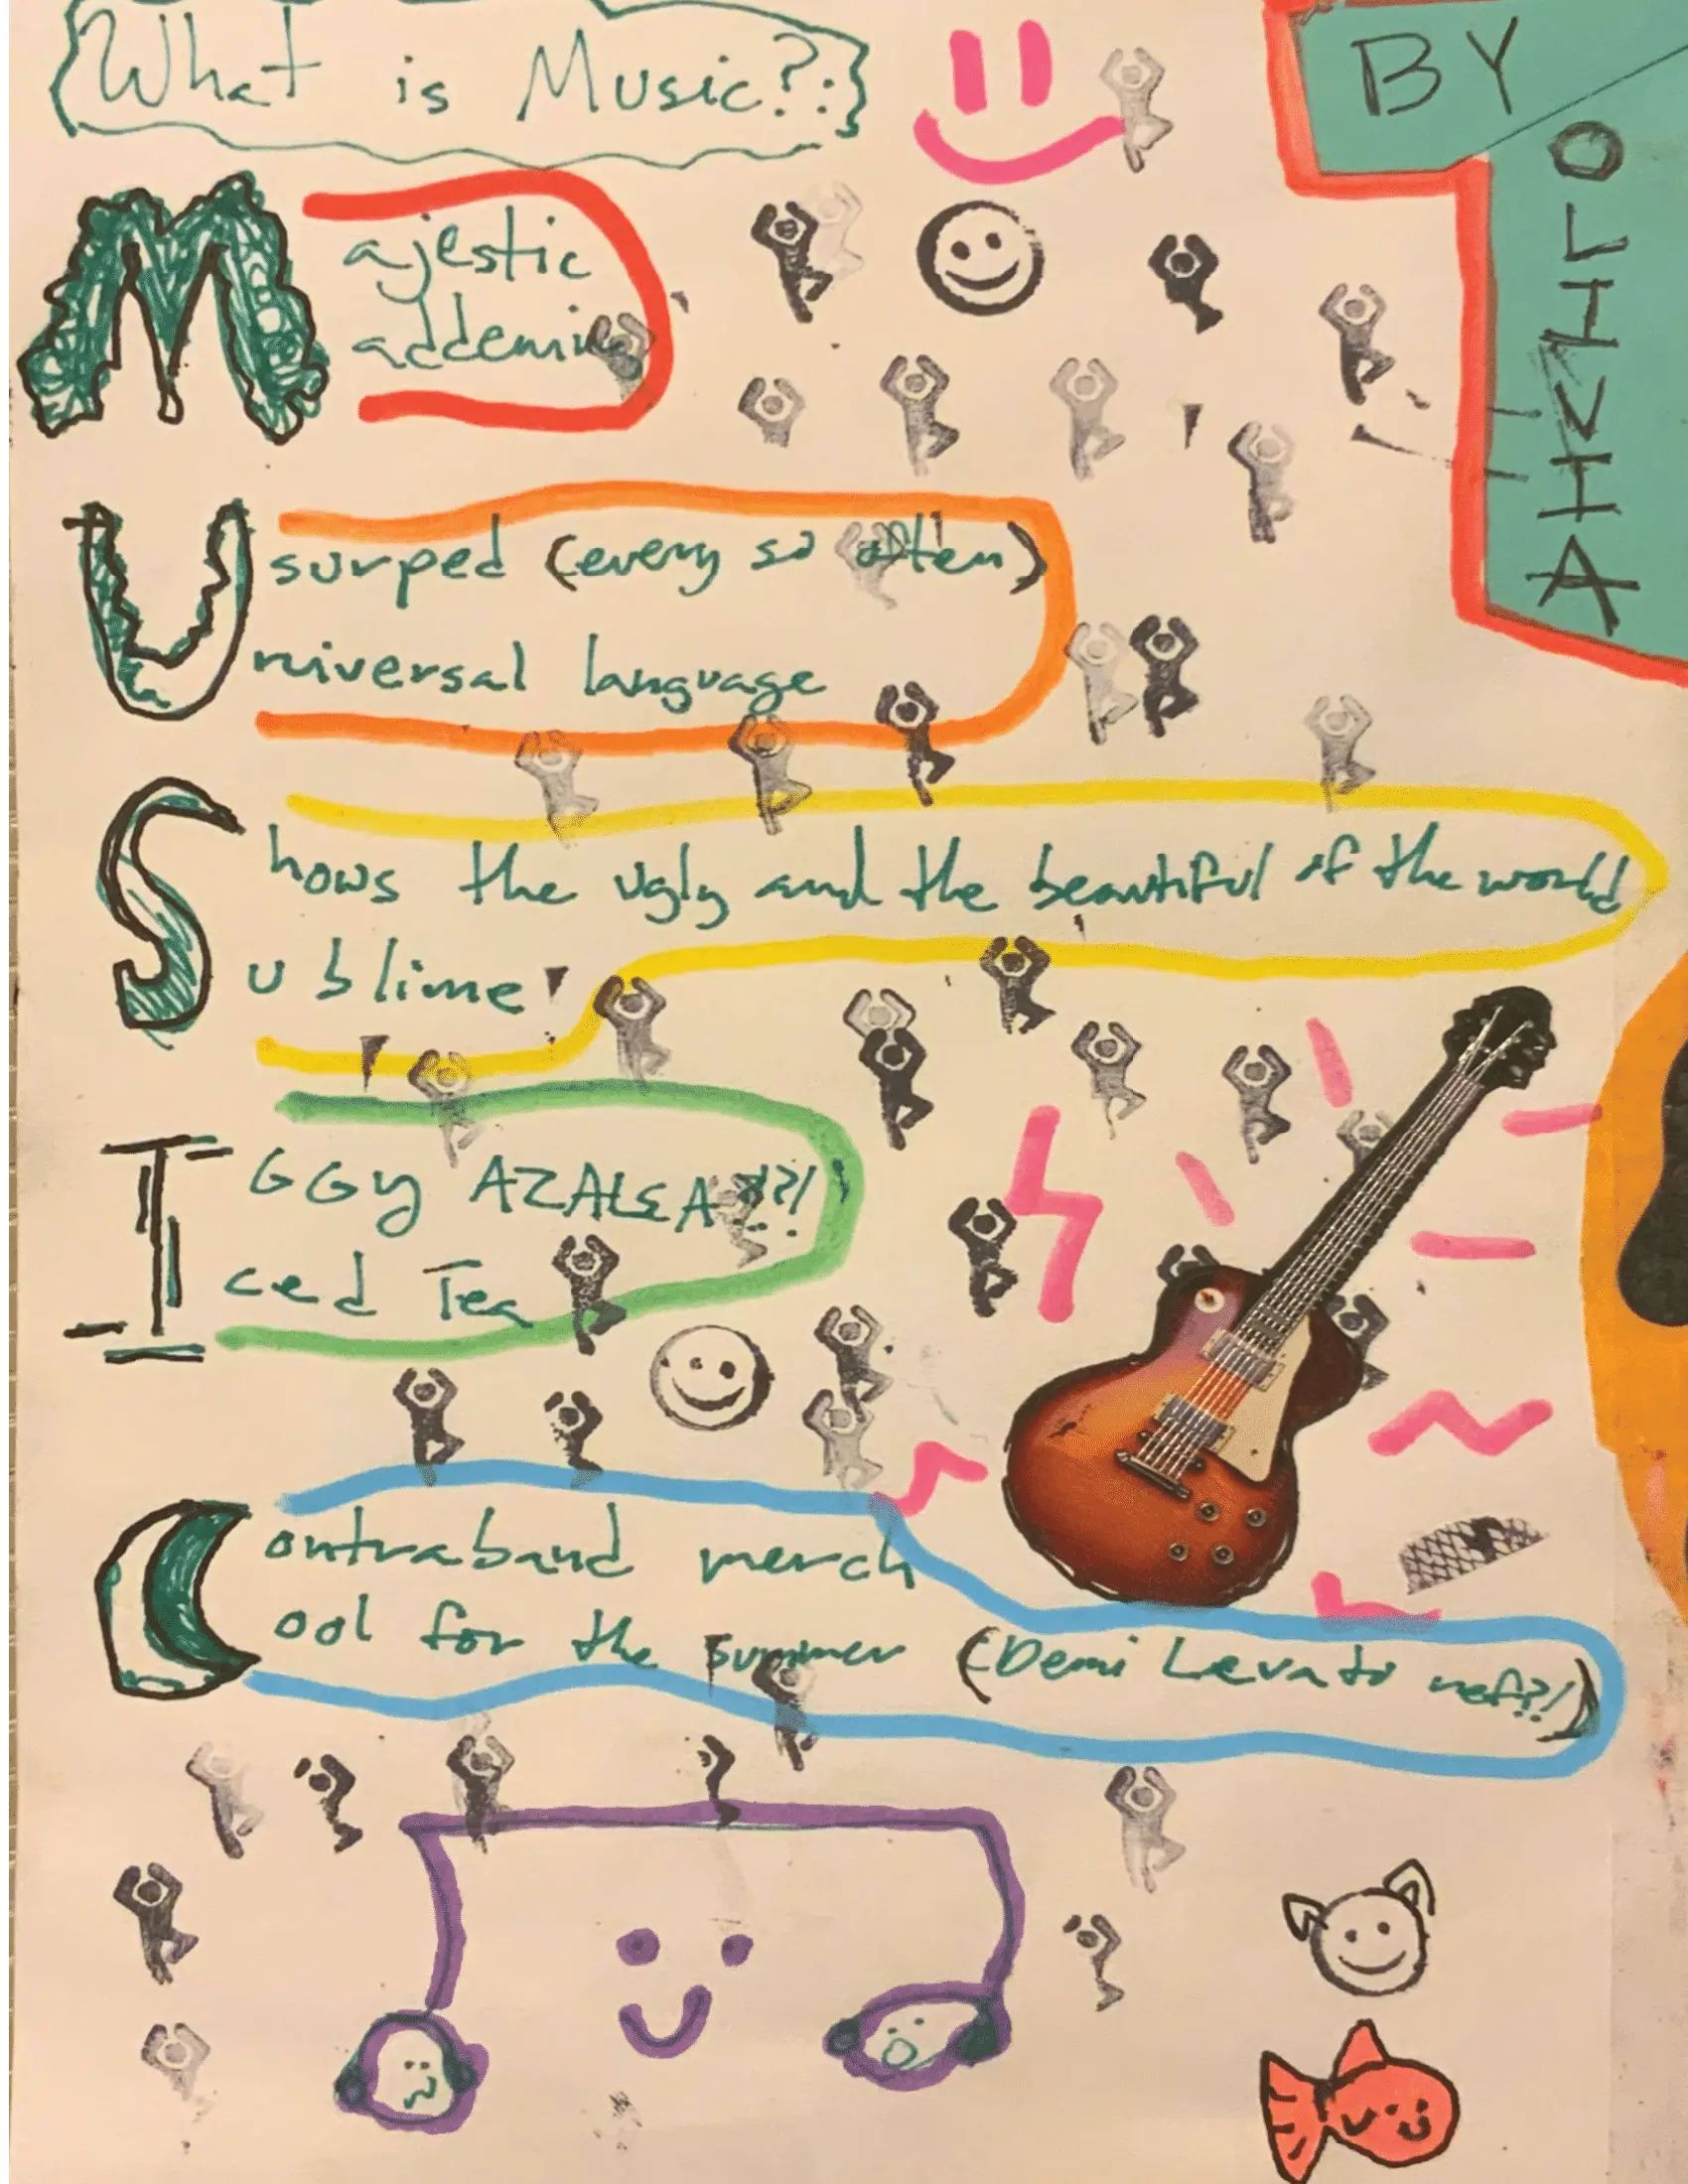 What is Music?:
BY
OLIVIA
Majestic
addeming
Usurped (every so often)
Universal language
Shows the ugly and the beautiful of the world
Sublime
IGGY AZALEA??!
Iced Tea
Contraband merch
Cool for the summer (Demi Levato ref?!)